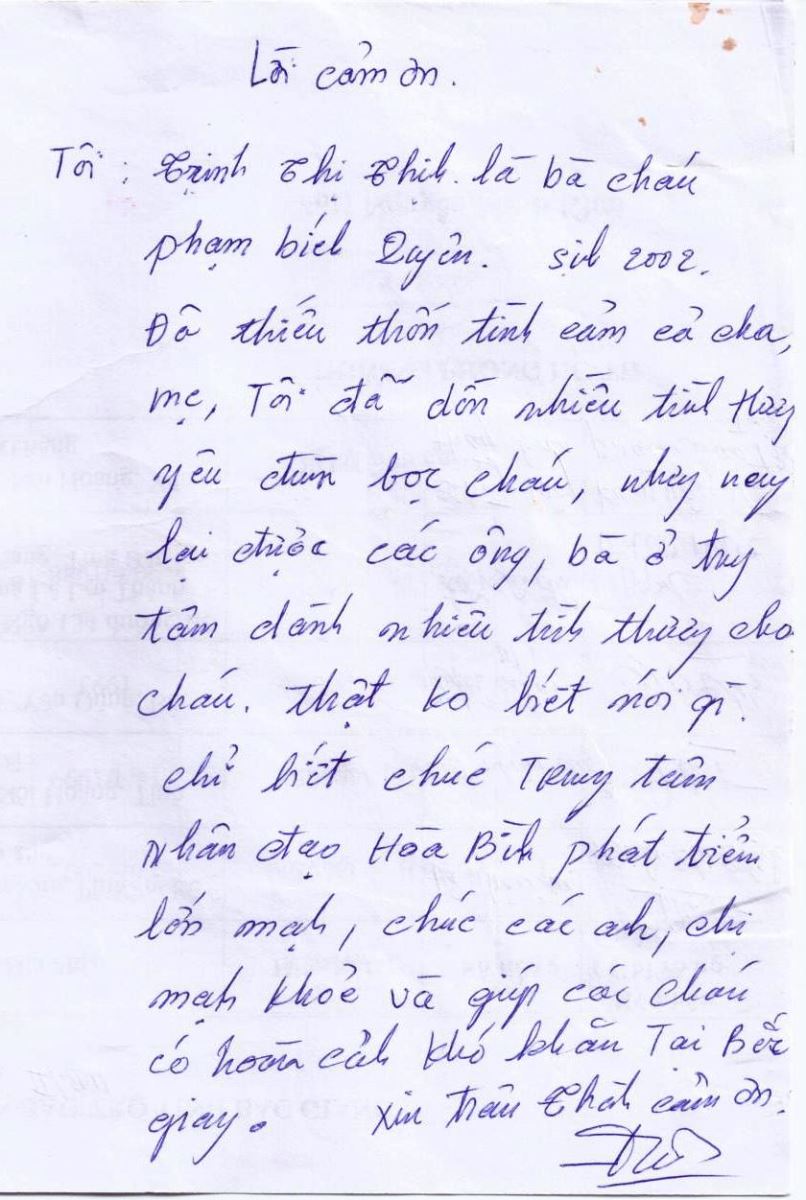 Lời cảm ơn.
Tôi: Trịnh Thị Thịh. là bà cháu
phạm bích Quyên. sịh 2002.
Đã thiếu thốn tình cảm cả cha,
mẹ, Tôi đã dồn nhiều tìh thươg
yêu đùm bọc cháu, nhưg nay
lại được các ông, bà ở trug
tâm dành nhiều tìh thươg cho
cháu. thật ko biết nói gì.
chỉ biết chúc Trung tâm
Nhân đạo Hòa Bìh phát triển
lớn mạh, chúc các ah, chị
mạh khỏe và giúp các cháu
có hoàn cảh khó khăn Tại Bắc
giag. xin trân thàh cảm ơn.